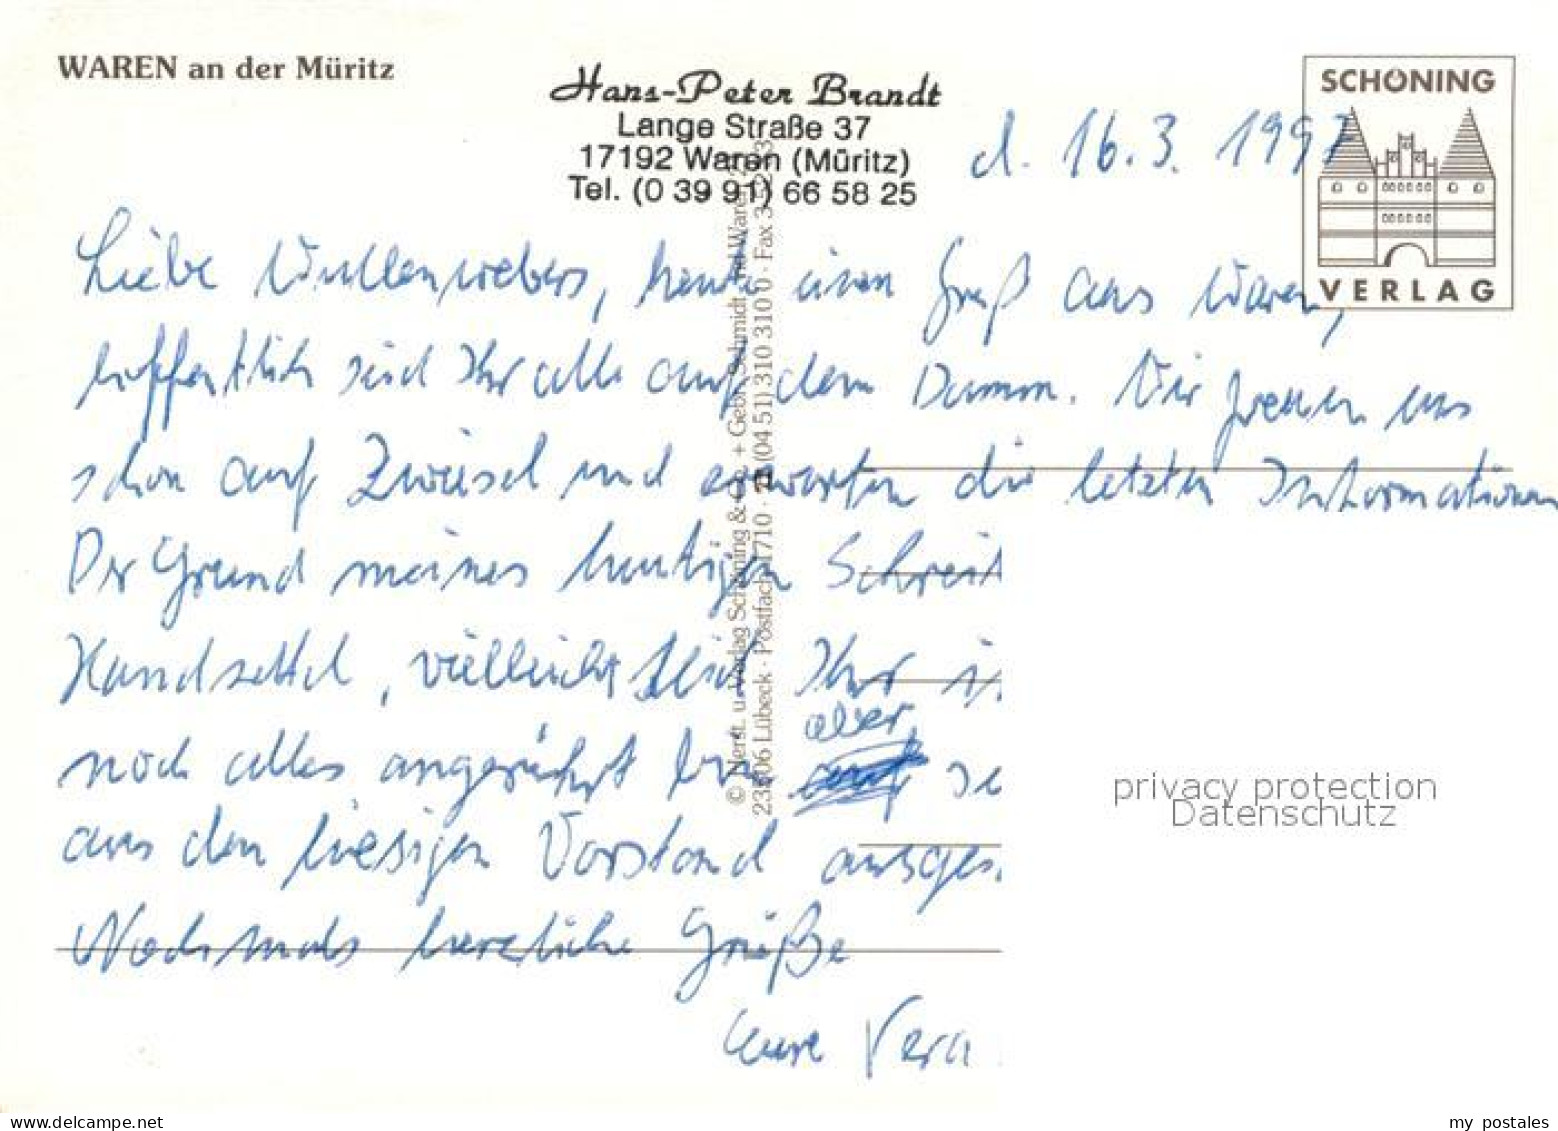 WAREN an der Müritz
Hans-Peter Brandt
Lange Straße 37
17192 Waren (Müritz)
Tel. (0 39 91) 66 58 25
SCHÖNING
VERLAG
d. 16.3. 1997
Liebe Wullenwebers, heute einen Gruß aus Waren,
hoffentlich seid Ihr alle auf dem Damm. Wir freuen uns
schon auf Zwiesel und erwarten die letzten Informationen
Der Grund meines heutigen Schreib
Handzettel, vielleicht Ihr
noch alles angerührt aber
aus dem hiesigen Vorstand ausges
Nochmals herzliche Grüße
Eure Vera
© Herst. u. Verlag Schöning & Co. + Gebr. Schmidt
Lübeck · Postfach 1710 · (04 51) 310 310 0 · Fax
privacy protection
Datenschutz
my postales